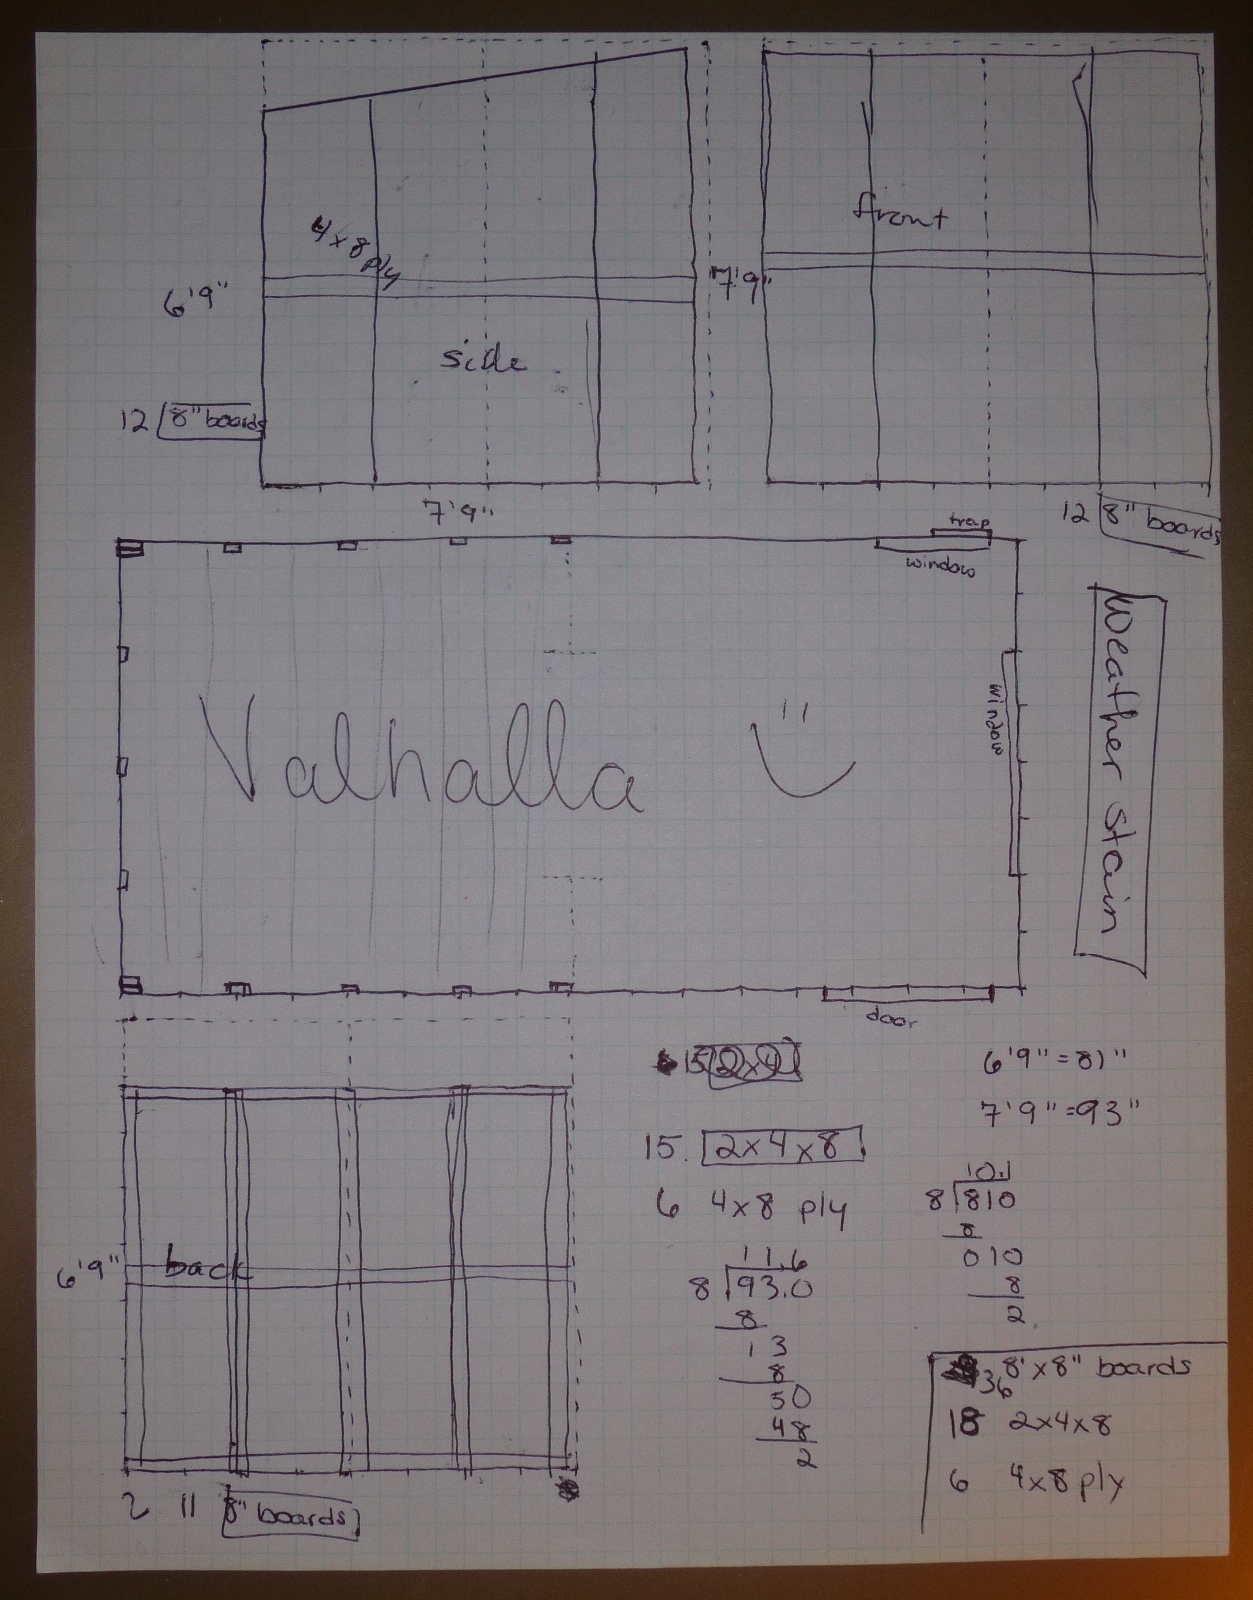 4x8 ply
front
6'9"
7'9"
side
12 8" boards
7'9"
12 8" boards
trap
window
Weather stain
window
Valhalla
door
15 2x4
6'9" = 81"
7'9" = 93"
15. 2x4x8
6 4x8 ply
10.1
8 810
8
010
8
2
11.6
8 93.0
8
13
8
50
48
2
6'9"
back
36 8'x8" boards
18 2x4x8
6 4x8 ply
11 8" boards